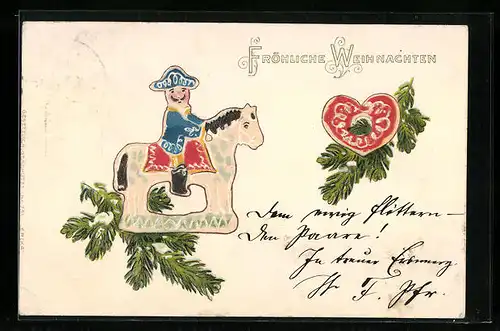 FRÖHLICHE WEIHNACHTEN
Dem ewig flittern –
den Paare!
In treuer Erinnerg
F. Pfr.